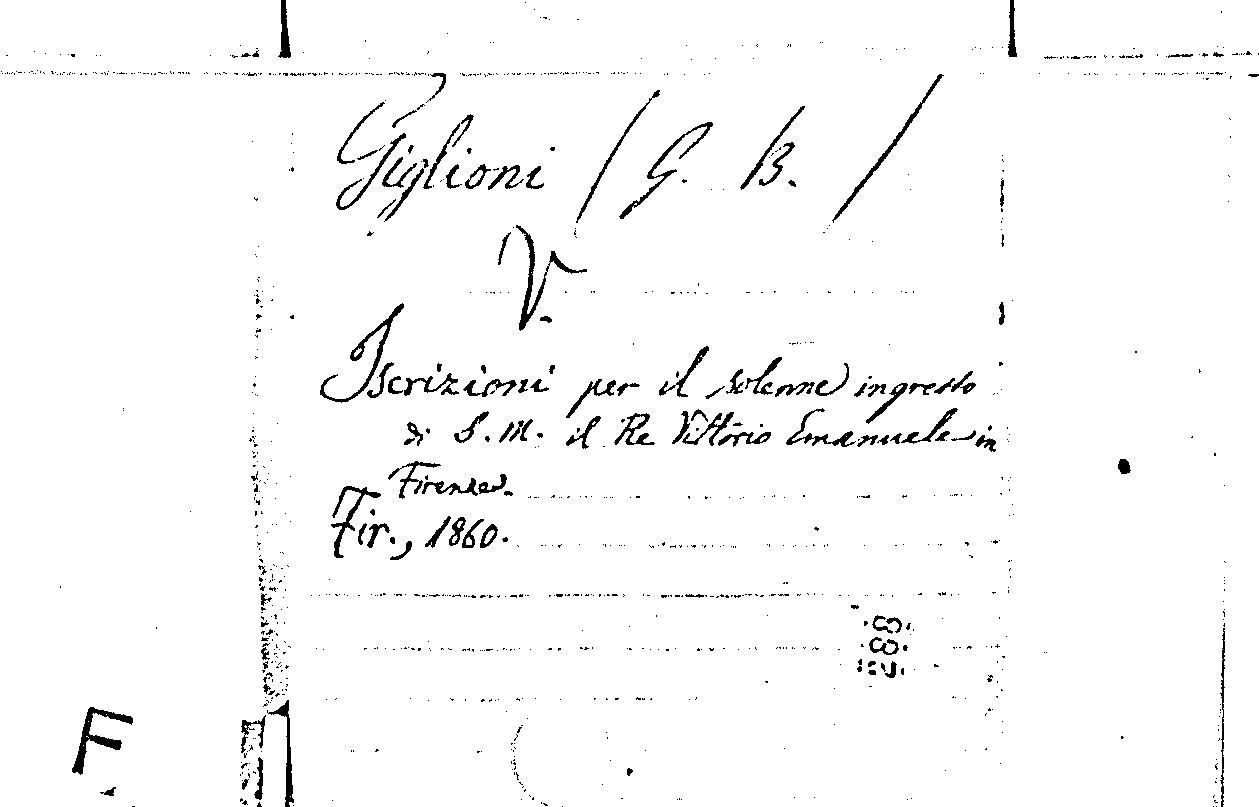 Giglioni (G. B.)
V.
Iscrizioni per il solenne ingresso
di S. M. il Re Vittorio Emanuele in
Firenze.
Fir., 1860.
F